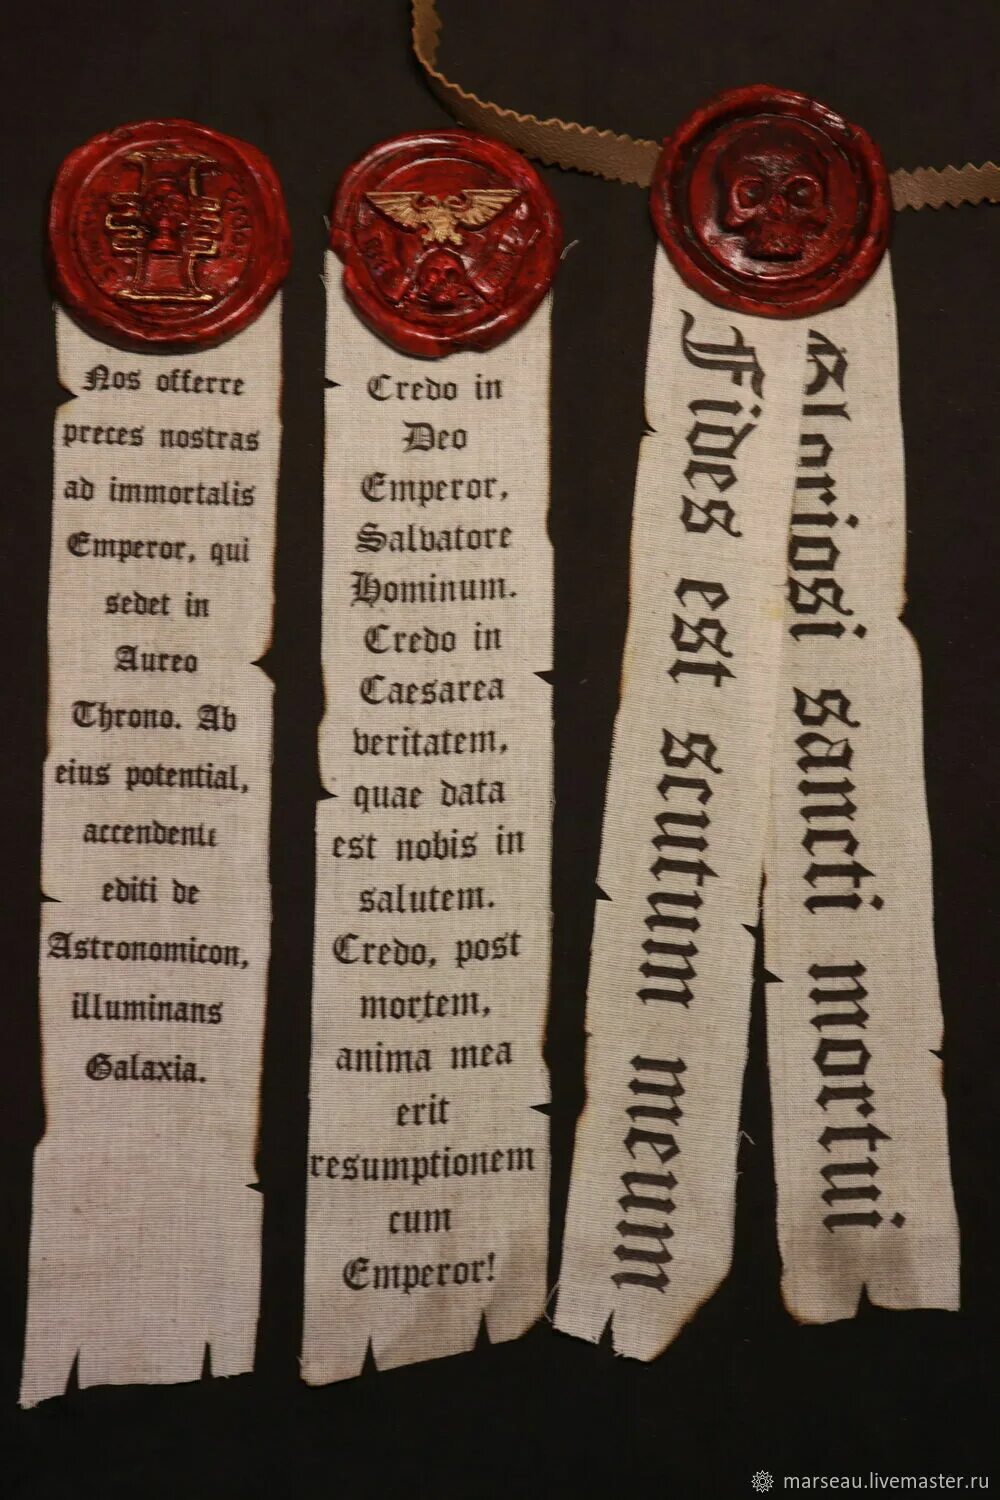 Nos offerre
preces nostras
ad immortalis
Emperor, qui
sedet in
Aureo
Throno. Ab
eius potential,
accendente
editi de
Astronomicon,
illuminans
Galaxia.
Credo in
Deo
Emperor,
Salvatore
Hominum.
Credo in
Caesarea
veritatem,
quae data
est nobis in
salutem.
Credo, post
mortem,
anima mea
erit
resumptionem
cum
Emperor!
Fides est scutum meum
Gloriosi sancti mortui
marseau.livemaster.ru